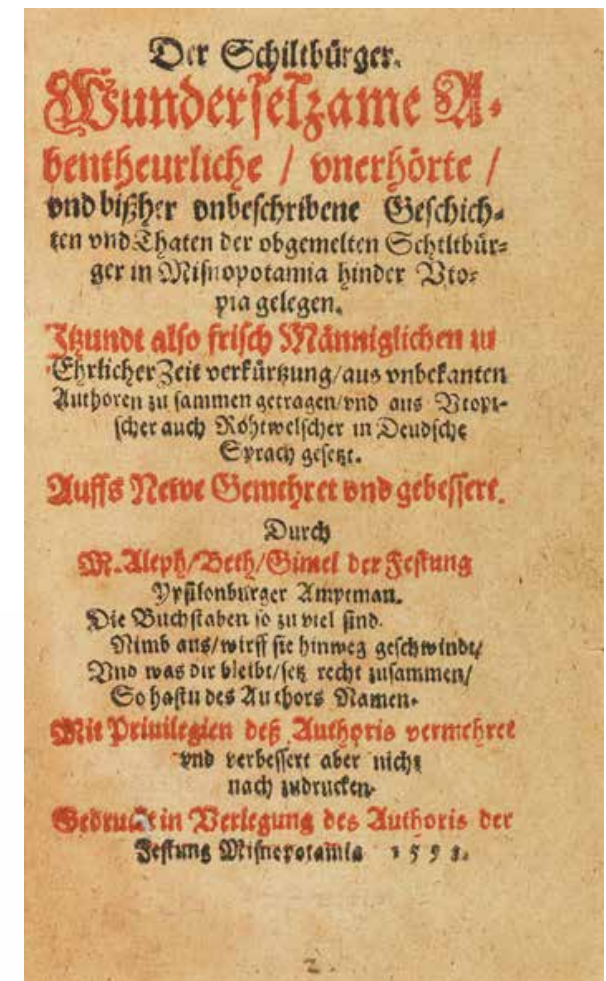 Der Schiltbürger.
Wunderselzame A-
bentheurliche / vnerhörte /
vnd bißher vnbeschribene Geschich-
ten vnd Thaten der obgemelten Schiltbür-
ger in Misnopotamia hinder Vto-
pia gelegen.
Itzundt also frisch Männiglichen zu
Ehrlicher Zeit verkürtzung / aus vnbekanten
Authoren zu sammen getragen / vnd aus Vtopi-
scher auch Röhtwelscher in Deudsche
Sprach gesetzt.
Auffs Newe Gemehret vnd gebessert.
Durch
M. Aleph / Beth / Gimel der Festung
Ypsilonburger Amptman.
Die Buchstaben so zu viel sind.
Nimb aus / wirff sie hinweg geschwindt /
Vnd was dir bleibt / setz recht zusammen /
So hastu des Authors Namen.
Mit Priuilegien deß Authoris vermehret
vnd verbessert aber nicht
nach zudrucken.
Gedruckt in Verlegung des Authoris der
Festung Misnopotamia 1598.
2.